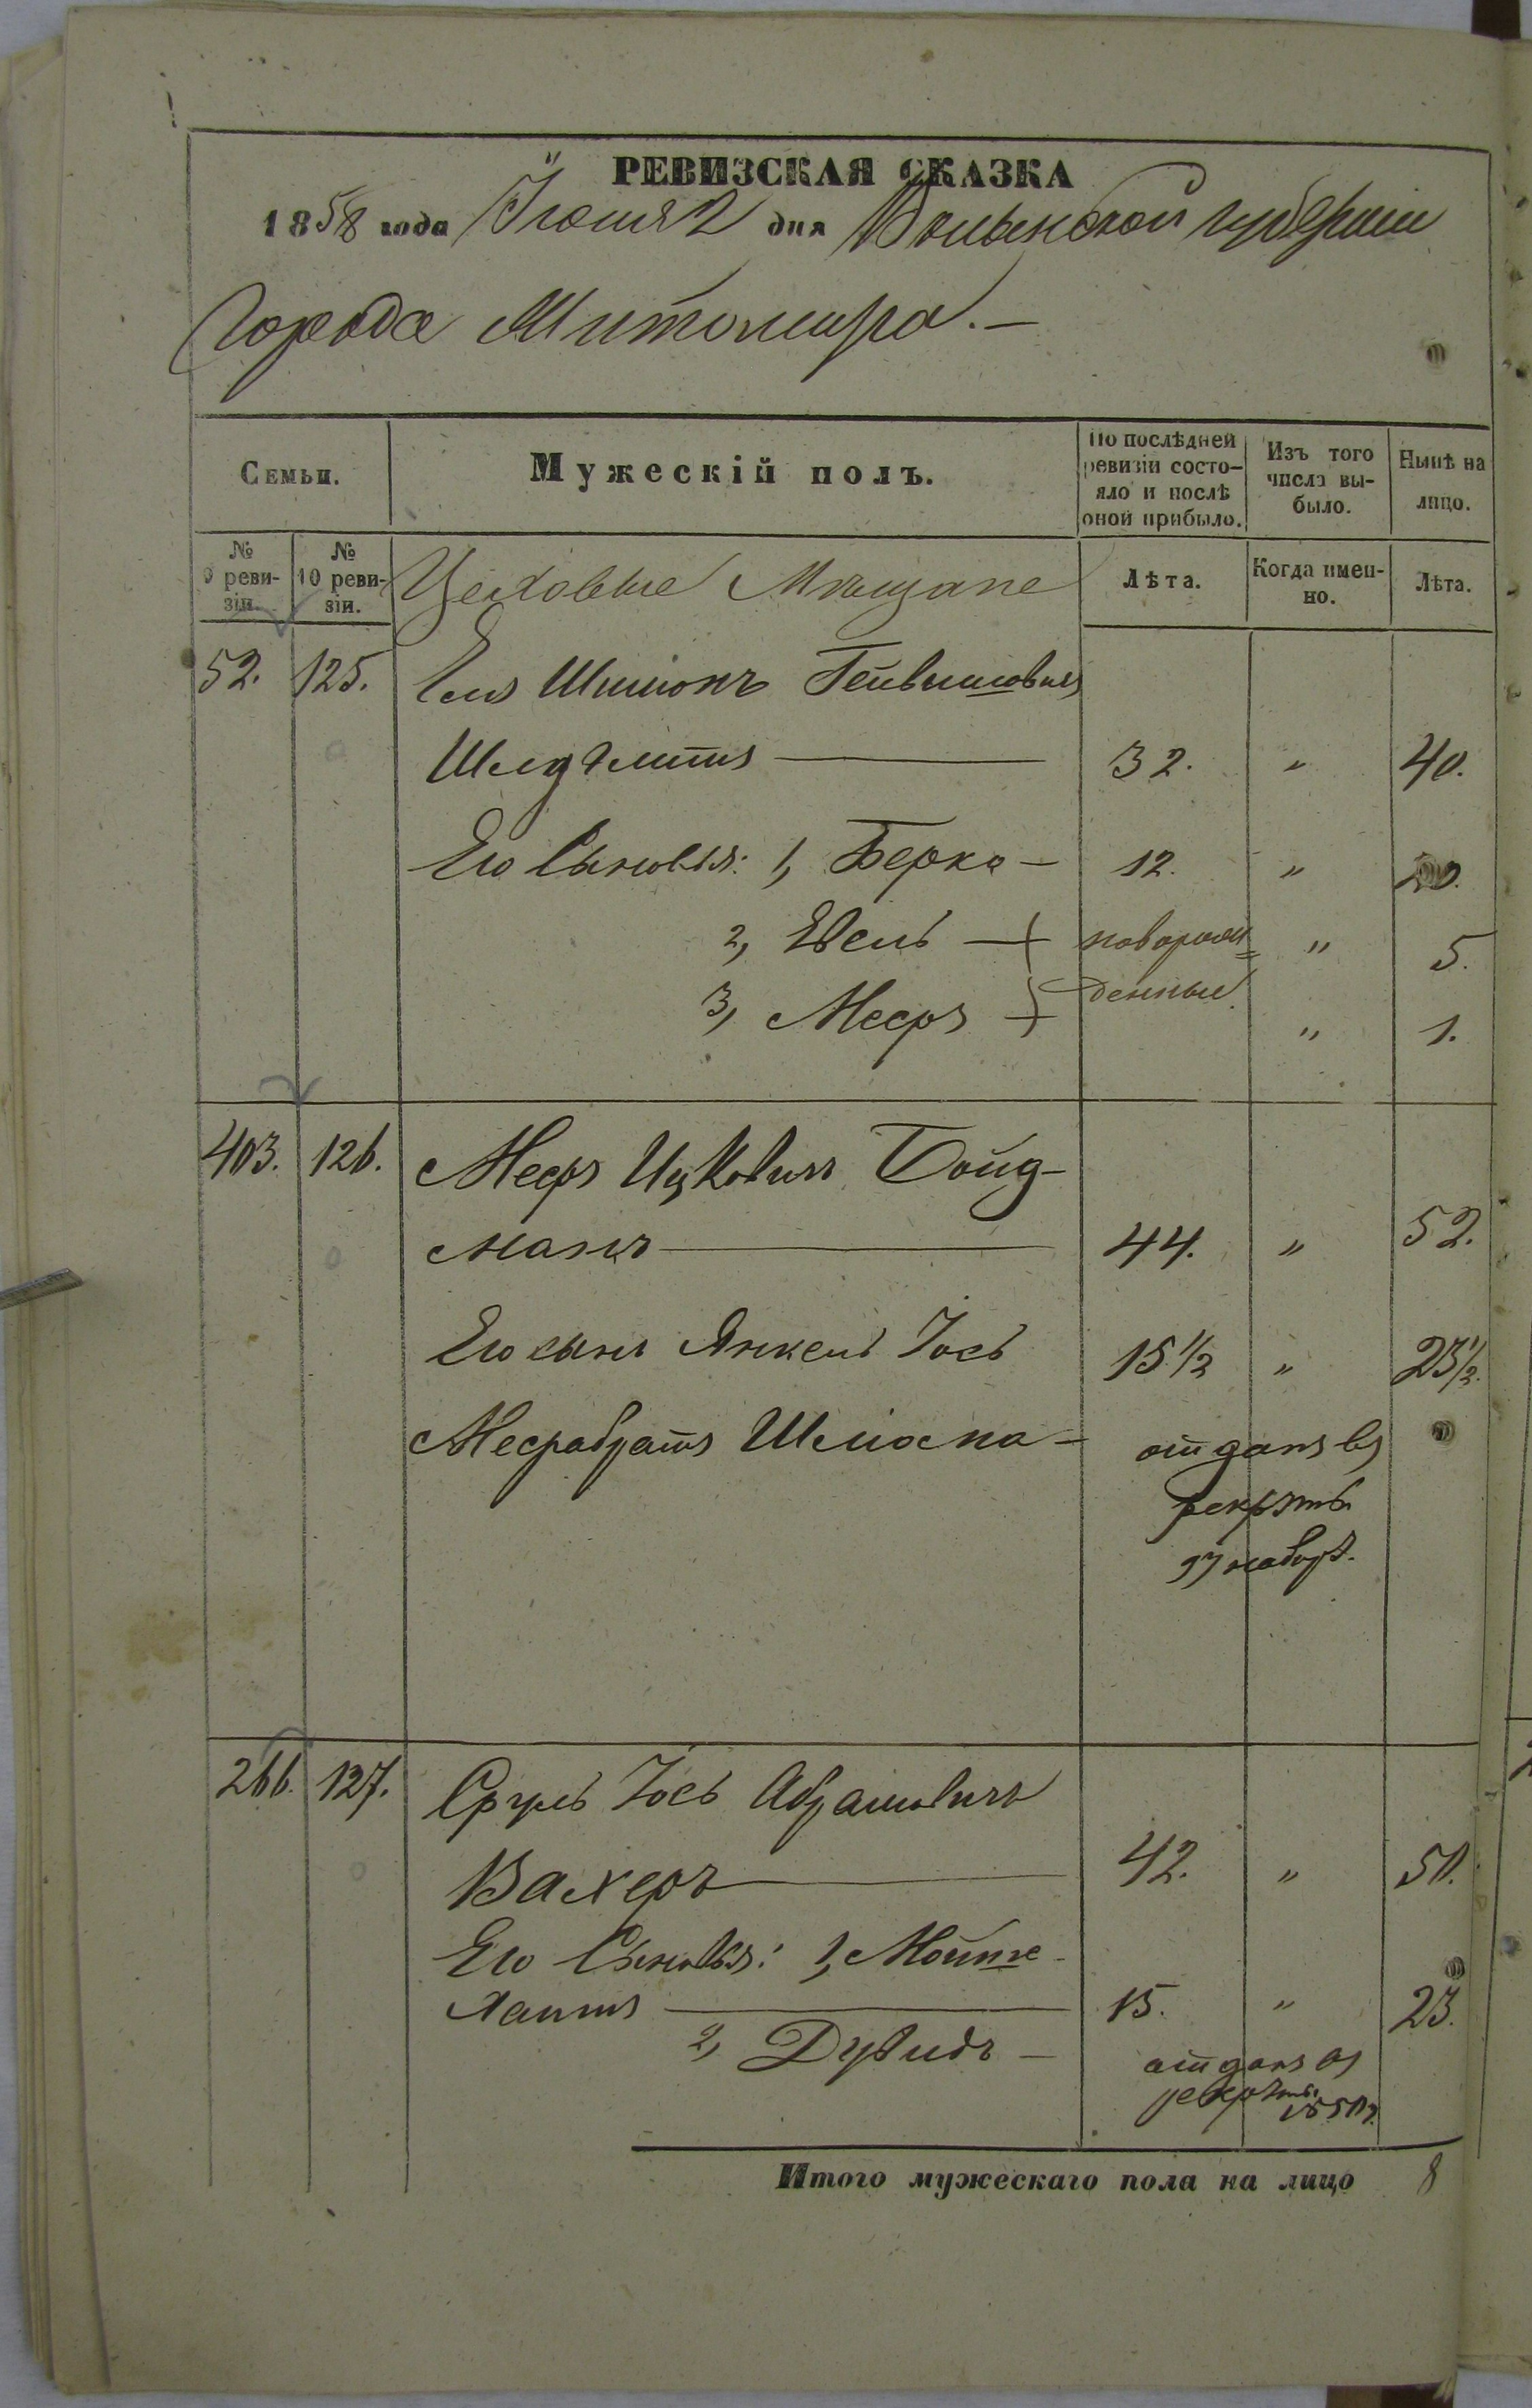 РЕВИЗСКАЯ СКАЗКА
1858 года Іюня 2 дня Волынской губерніи
Города Житомира.—
Семьи.
Мужескій полъ.
По послѣдней ревизіи состо-
яло и послѣ
оной прибыло.
Изъ того
числа вы-
было.
Нынѣ на
лицо.
№
9 реви-
зіи.
№
10 реви-
зіи.
Цеховые Мѣщане
Лѣта.
Когда имен-
но.
Лѣта.
52. 125. Шимонъ
32. " 40.
Его Сыновья: 1, Берко — 12. " 20.
2, — новорож= " 5.
3, Мееръ — денные " 1.
403. 126. Мееръ Ицковичъ Бойд-
манъ — 44. " 52.
Его сынъ Янкель Іось 15 1/2 " 23 1/2.
Мера братъ Шліома — отданъ въ
рекруты
наборъ.
266. 127. Сруль Іось Абрамовичъ
Вахеръ — 42. " 50.
Его Сыновья: 1, Мошке
Хаимъ — 15. " 23.
2, Дувидъ — отданъ въ
рекруты
1850 г.
Итого мужескаго пола на лицо 8